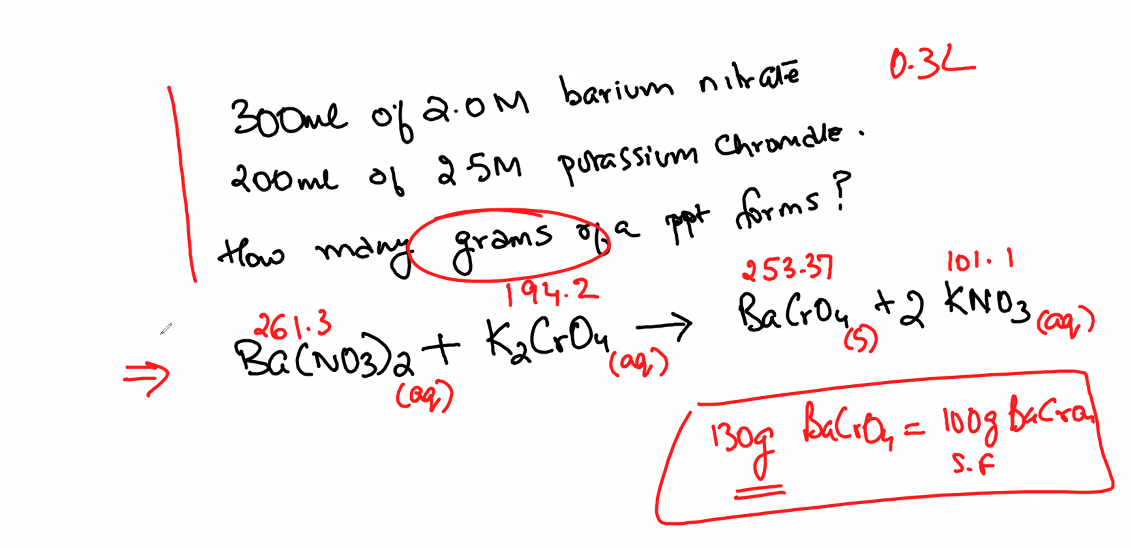 0.3L
300ml of 2.0M barium nitrate
200ml of 2.5M putassium Chromate.
How many grams of a ppt forms?
261.3 194.2 253.37 101.1
Ba(NO3)2(aq) + K2CrO4(aq) → BaCrO4(s) + 2 KNO3(aq)
⇒
130g BaCrO4 = 100g BaCrO4
S.F